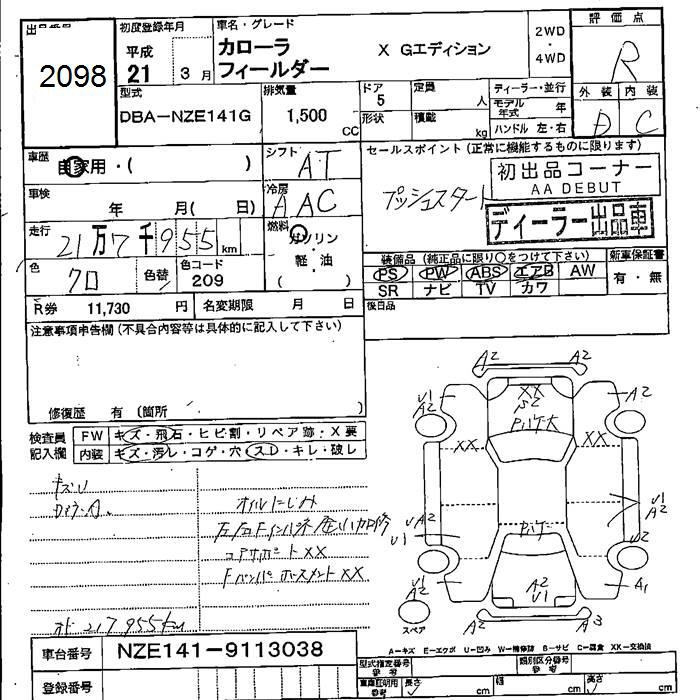 出品番号
2098
初度登録年月
平成
21 3月
車名・グレード
カローラ
フィールダー
X Gエディション
2WD
・
4WD
評価点
R
外装 内装
D C
型式
DBA-NZE141G
排気量
1,500
CC
ドア
5
形状
定員
人
積載
kg
ディーラー・並行
モデル年式 年
ハンドル 左・右
車歴
自家用・( )
シフト
AT
冷房
AAC
燃料
ガソリン
軽・油
( )
車検
年 月( 日)
走行
21万7千955km
色
クロ
色替
色コード
209
R券 11,730 円
名変期限 月 日
セールスポイント(正常に機能するものに限ります)
プッシュスタート
初出品コーナー
AA DEBUT
ディーラー出品車
装備品(純正品に限り○をつけて下さい)
PS PW ABS エアB AW
SR ナビ TV カワ
新車保証書
有・無
後日品
注意事項申告欄(不具合内容等は具体的に記入して下さい)
修復歴 有 (箇所 )
検査員
記入欄
FW キズ・飛石・ヒビ割・リペア跡・X要
内装 キズ・汚レ・コゲ・穴・スレ・キレ・破レ
キズU
オイルにじみ
コアサポートXX
XX
オド 217955km
A2 A2
U1
A2
A2
XX
XX XX
U1
A2
A2
U1
U2
U1
A2
A2
U1
A1
A2 A3
スペア
車台番号 NZE141-9113038
登録番号
A-キズ E-エクボ U-凹み W-補修跡 B-サビ C-腐食 XX-交換済
型式指定番号
参考
類別区分番号
参考
車庫証明用
参考
長さ cm
幅 cm
高さ cm